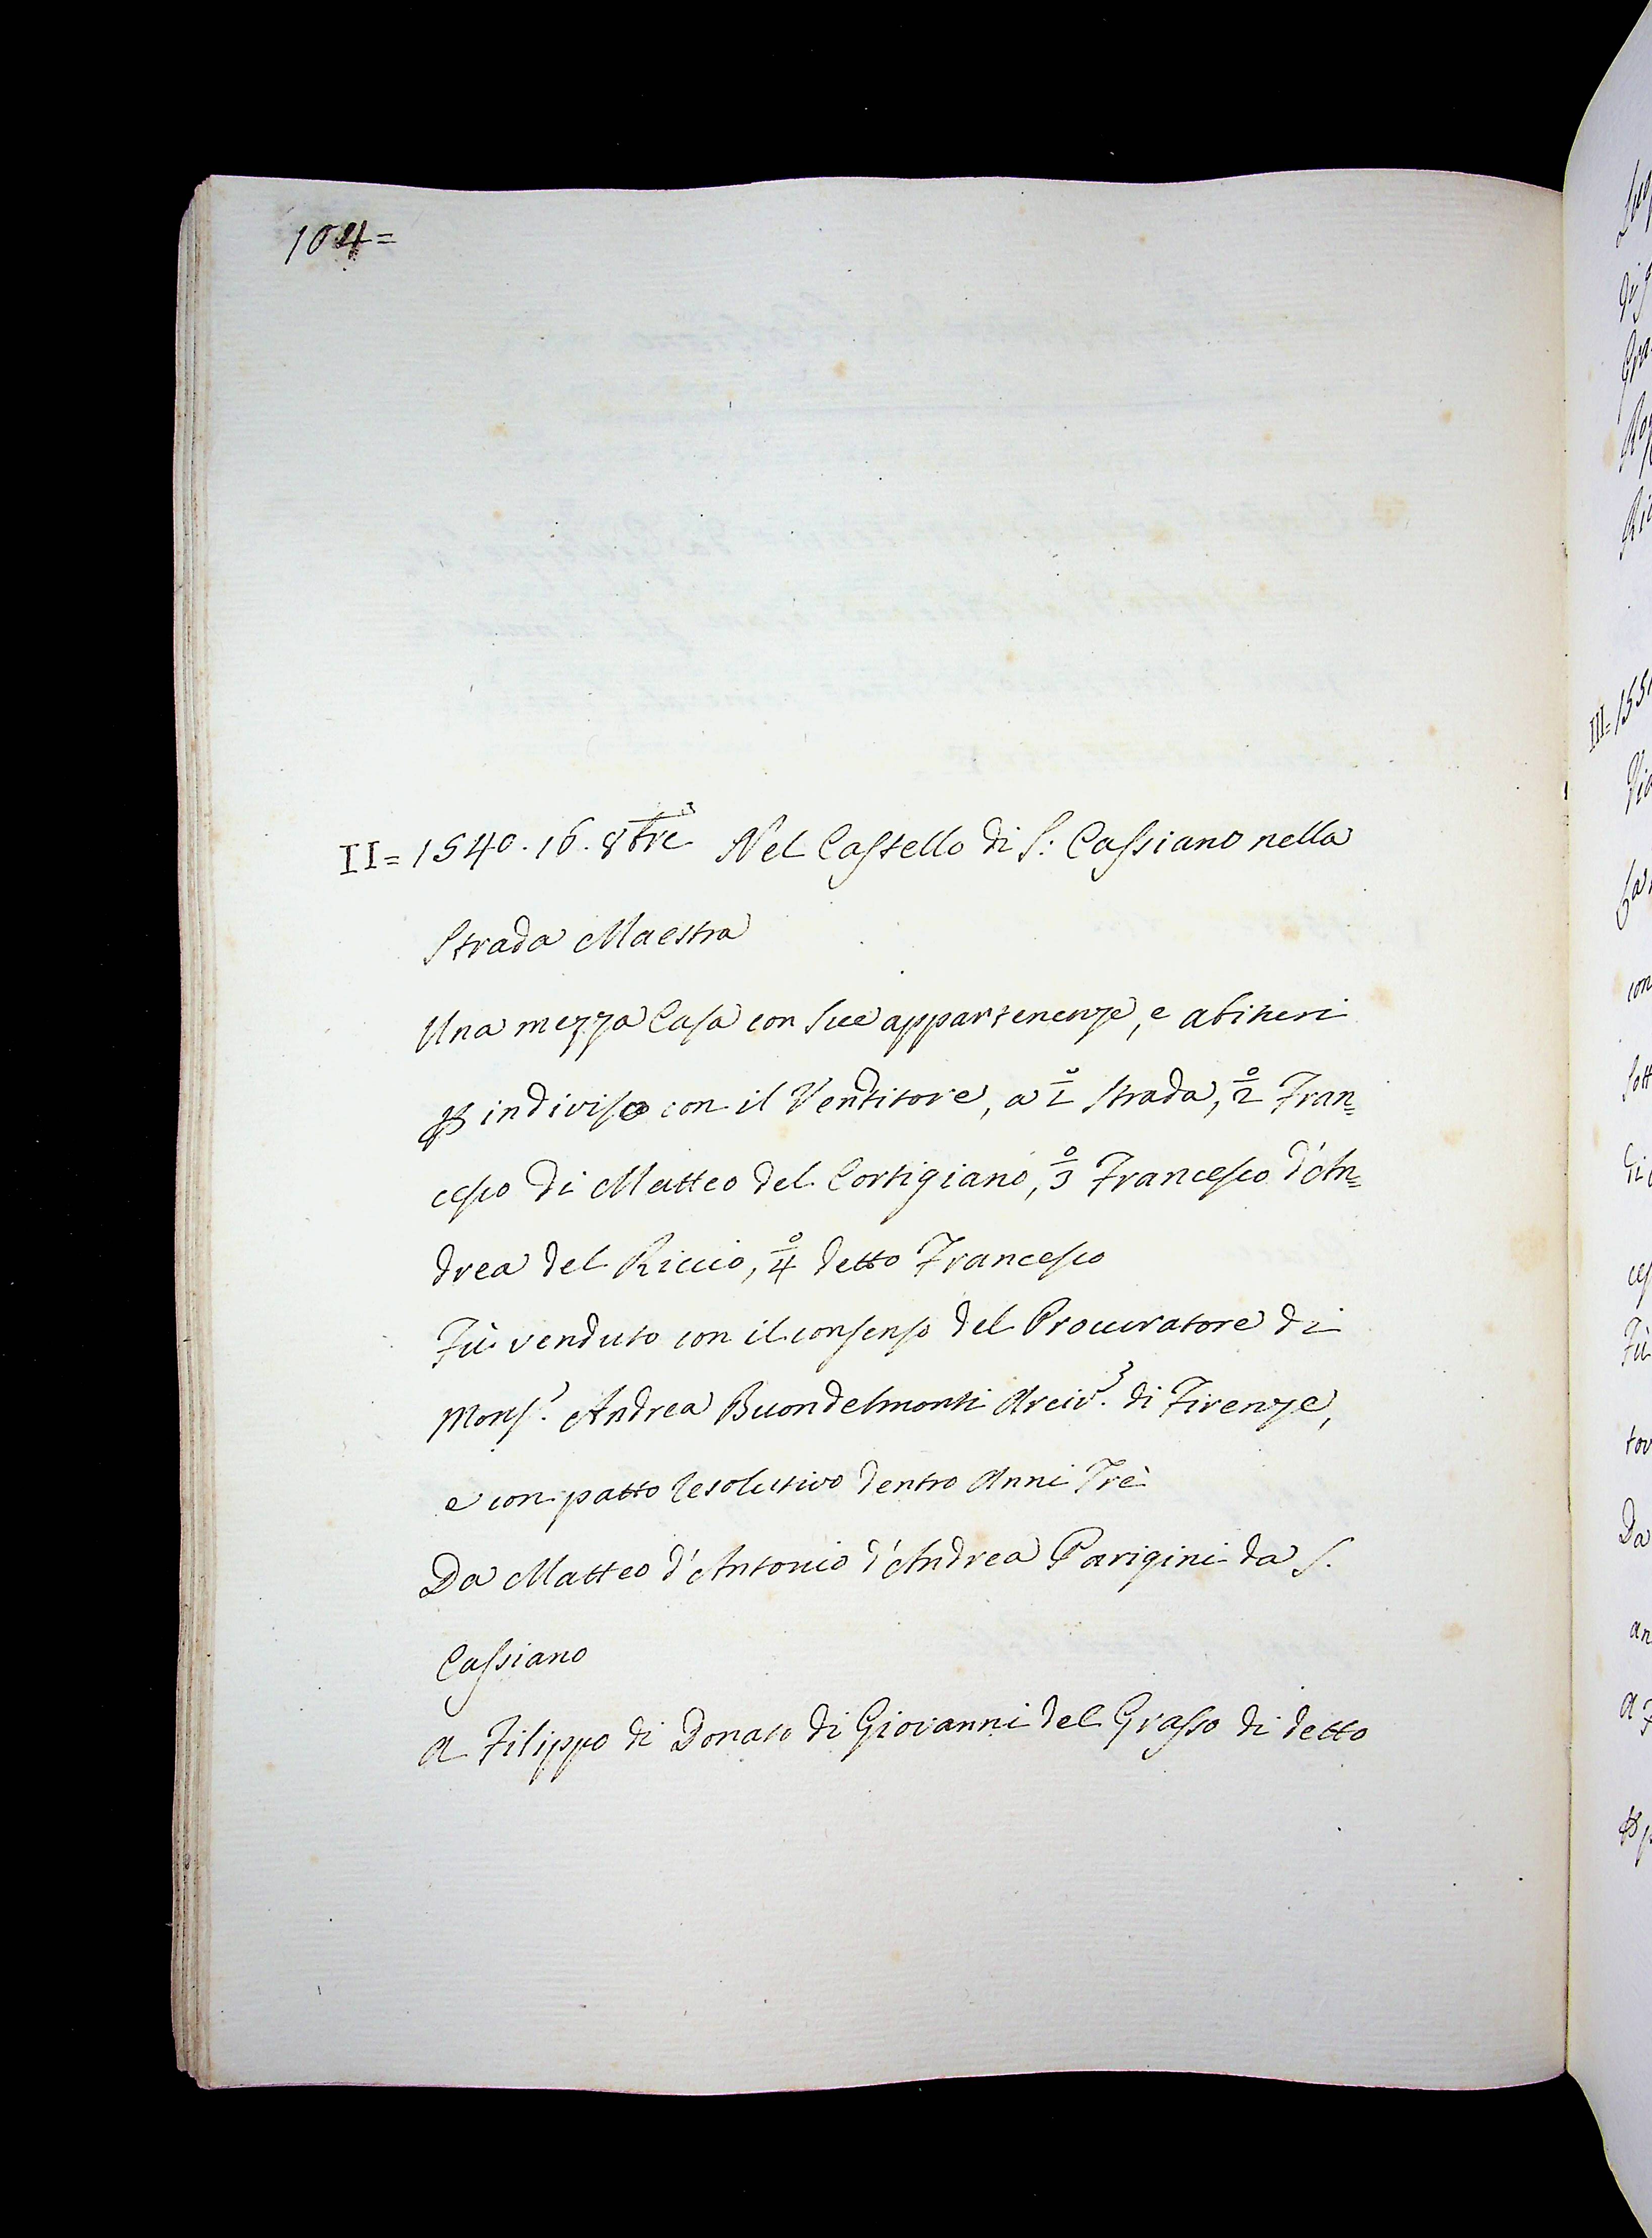 104=
II= 1540. 16. 8bre Nel Castello di S: Cassiano nella
Strada Maestra
Una mezza Casa con sue appartenenze, e abituri
p indiviso con il Venditore, a 1° Strada, 2° Fran=
cesco di Matteo del Cortigiano, 3° Francesco d'An=
drea del Riccio, 4° detto Francesco
Fù venduto con il consenso del Procuratore di
Mons.r Andrea Buondelmonti Arciv.° di Firenze,
e con patto resolutivo dentro Anni Trè
Da Matteo d'Antonio d'Andrea Parigini da S.
Cassiano
A Filippo di Donato di Giovanni del Grasso di detto